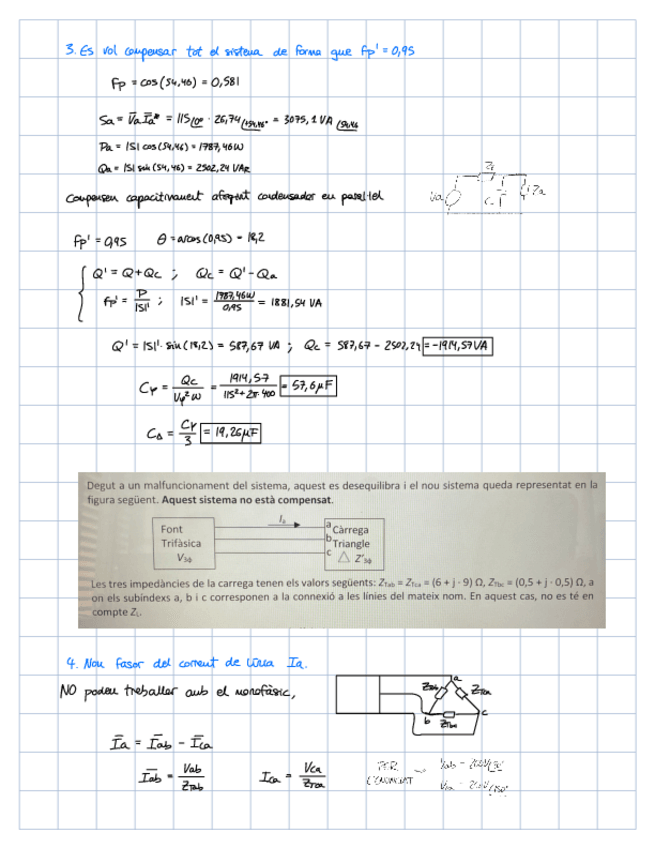 3. Es vol compensar tot el sistema de forma que Fp' = 0,95
Fp = cos(54,46) = 0,581
Sa = V̄a Īa* = 115∠0° · 26,74∠+54,46° = 3075,1 VA ∠54,46
Pa = |S| cos(54,46) = 1787,46W
Qa = |S| sin(54,46) = 2502,24 VAR
Compensem capacitivament afegint condensador en paral·lel
Va
C
Za
Fp' = 0,95 θ = arcos(0,95) = 18,2
Q' = Q + Qc ; Qc = Q' - Qa
fp' = P/|S|' ; |S|' = 1787,46W/0,95 = 1881,54 VA
Q' = |S|' · sin(18,2) = 587,67 VA ; Qc = 587,67 - 2502,24 = -1914,57VA
CY = Qc/Vf²ω = 1914,57/115²+2π·400 = 57,6μF
CΔ = CY/3 = 19,26μF
Degut a un malfuncionament del sistema, aquest es desequilibra i el nou sistema queda representat en la
figura següent. Aquest sistema no està compensat.
Font
Trifàsica
V3ϕ
Ia
a
b
c
Càrrega
Triangle
△ Z'3ϕ
Les tres impedàncies de la carrega tenen els valors següents: ZTab = ZTca = (6 + j · 9) Ω, ZTbc = (0,5 + j · 0,5) Ω, a
on els subíndexs a, b i c corresponen a la connexió a les línies del mateix nom. En aquest cas, no es té en
compte ZL.
4. Nou fasor del corrent de línia Ia.
NO podem treballar amb el monofàsic,
a
ZTab
ZTca
b
c
ZTbc
Īa = Īab - Īca
Īab = Vab/ZTab Ica = Vca/ZTca
PER
L'ENUNCIAT